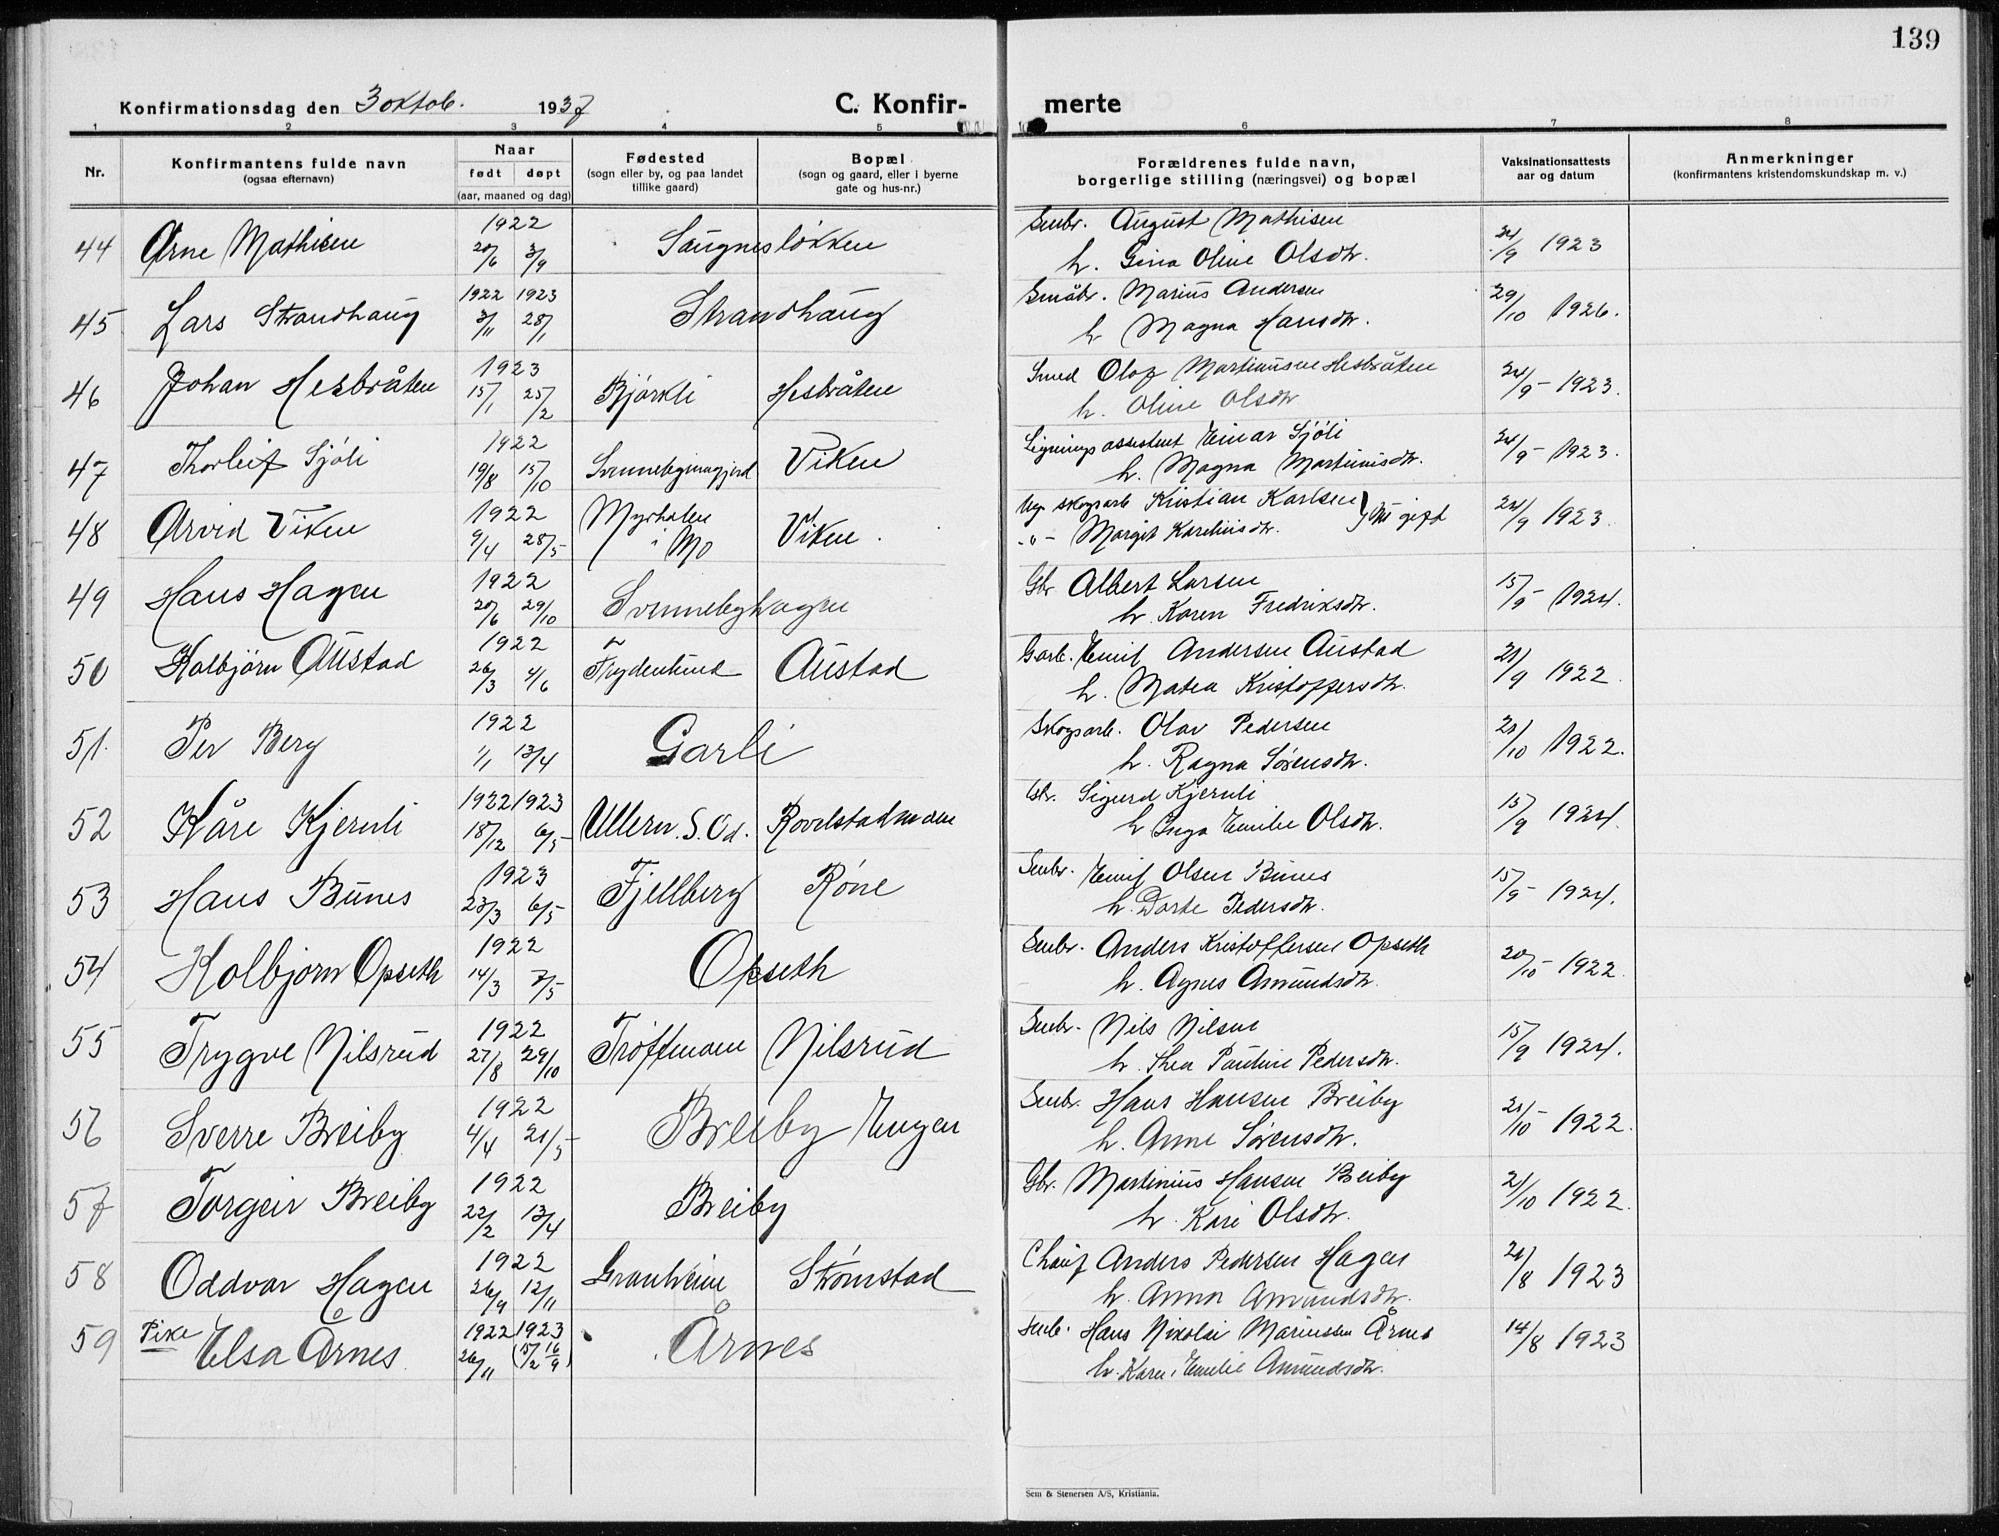 139
Konfirmationsdag den 3 oktob. 1937 C. Konfir- merte
1 2 3 4 5 6 7 8
Nr. Konfirmantens fulde navn (ogsaa efternavn) Naar født døpt (aar, maaned og dag) Fødested (sogn eller by, og paa landet tillike gaard) Bopæl (sogn og gaard, eller i byerne gate og hus-nr.) Forældrenes fulde navn, borgerlige stilling (næringsvei) og bopæl Vaksinationsattests aar og datum Anmerkninger (konfirmantens kristendomskundskap m. v.)
44 Arne Mathisen 1922 20/6 3/9 Saugnesløkken Smbr. August Mathisen 24/9 1923
h. Gina Oline Olsdtr.
45 Lars Strandhaug 1922 3/11 1923 28/1 Strandhaug Småbr. Marius Andersen 29/10 1926.
h Magna Hansdtr.
46 Johan Hesbråten 1923 15/1 25/2 Bjørkli Hesbråten Smed Olaf Martinusen Hesbråten 24/9 - 1923.
h. Oline Olsdtr
47 Thorleif Sjøli 1922 19/8 15/10 Viken Ligningsassistent Einar Sjøli 24/9 - 1923.
h. Magna Martinusdtr.
48 Arvid Viken 1922 9/4 28/5 Myrhalen i Mo Viken. Ug. skogsarb Kristian Karlsen } gift 24/9 1923.
-"- Margit Kareliusdtr.
49 Hans Hagen 1922 20/6 29/10 Svennebyhagen Gbr Albert Larsen 15/9 - 1924.
h. Karen Fredriksdtr.
50 Kolbjørn Austad 1922 26/3 4/6 Frydenlund Austad Garb. Emil Andersen Austad 21/9 1922.
h. Matea Kristoffersdtr.
51. Per Berg 1922 1/1 13/4 Garli Skogsarb. Olav Pedersen 21/10 1922.
h. Ragna Sørensdtr.
52 Kåre Kjernli 1922 18/12 1923 6/5 Ullern S. Od. Rovelstadmoen Gbr. Sigurd Kjernli 15/9 1924.
h Inga Emilie Olsdtr.
53 Hans Bunes 1923 23/3 6/5 Fjellberg Røne Smbr. Emil Olsen Bunes 15/9 - 1924.
h. Dorte Pedersdtr.
54 Kolbjørn Opseth 1922 14/3 7/5 Opseth Smbr. Anders Kristoffersen Opseth 20/10 - 1922.
h. Agnes Amundsdtr.
55 Trygve Nilsrud 1922 27/8 29/10 Trøftmoen Nilsrud Smbr. Nils Nilsen 15/9 1924.
h. Thea Pauline Pedersdtr.
56 Sverre Breiby 1922 4/4 21/5 Breiby Engen Smbr. Hans Hansen Breiby 21/10 - 1922.
h. Anne Sørensdtr.
57 Torgeir Breiby 1922 22/2 13/4 Breiby Gbr. Martinius Hansen Breiby 21/10 1922.
h. Kari Olsdtr.
58 Oddvar Hagen 1922 26/9 12/11 Granheim Strømstad Chauf Anders Pedersen Hagen 21/8 1923
h. Anna Amundsdtr.
59 Pike Elsa Årnes 1922 26/11 1923 (15/2 16/9) Årnes Smb. Hans Nikolai Mariussen Årnes 14/8 1923
h. Karen Emilie Amundsdtr.
Sem & Stenersen A/S, Kristiania.